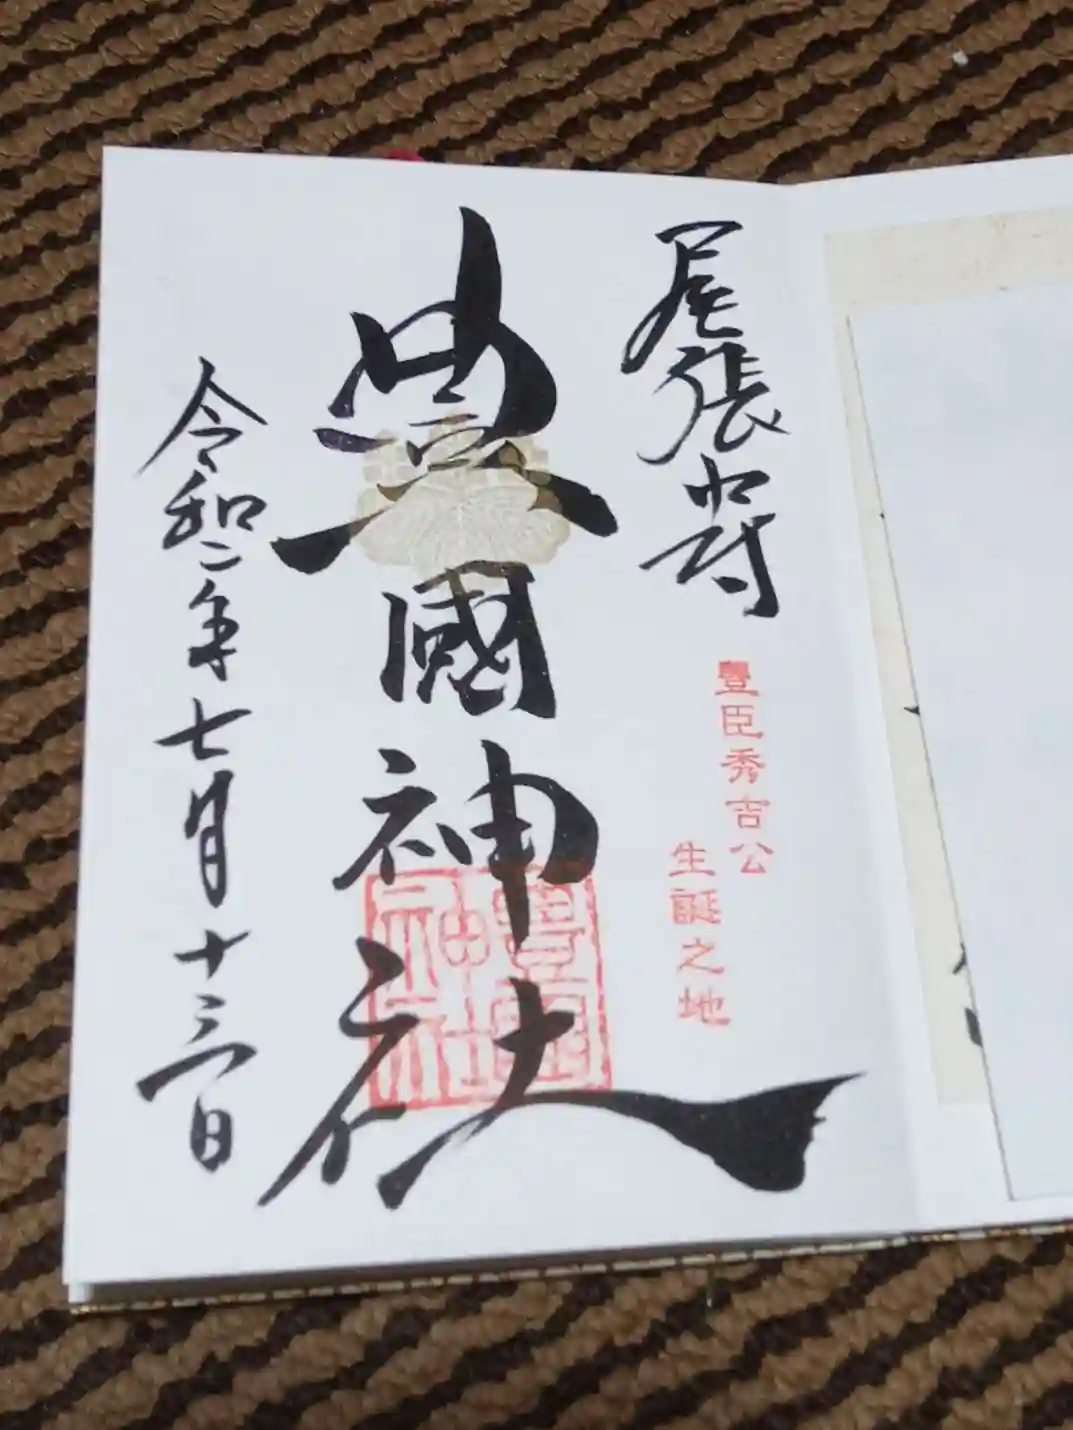 尾張中村
豐臣秀吉公
生誕之地
豊國神社
豊國
神社
令和二年七月十三日